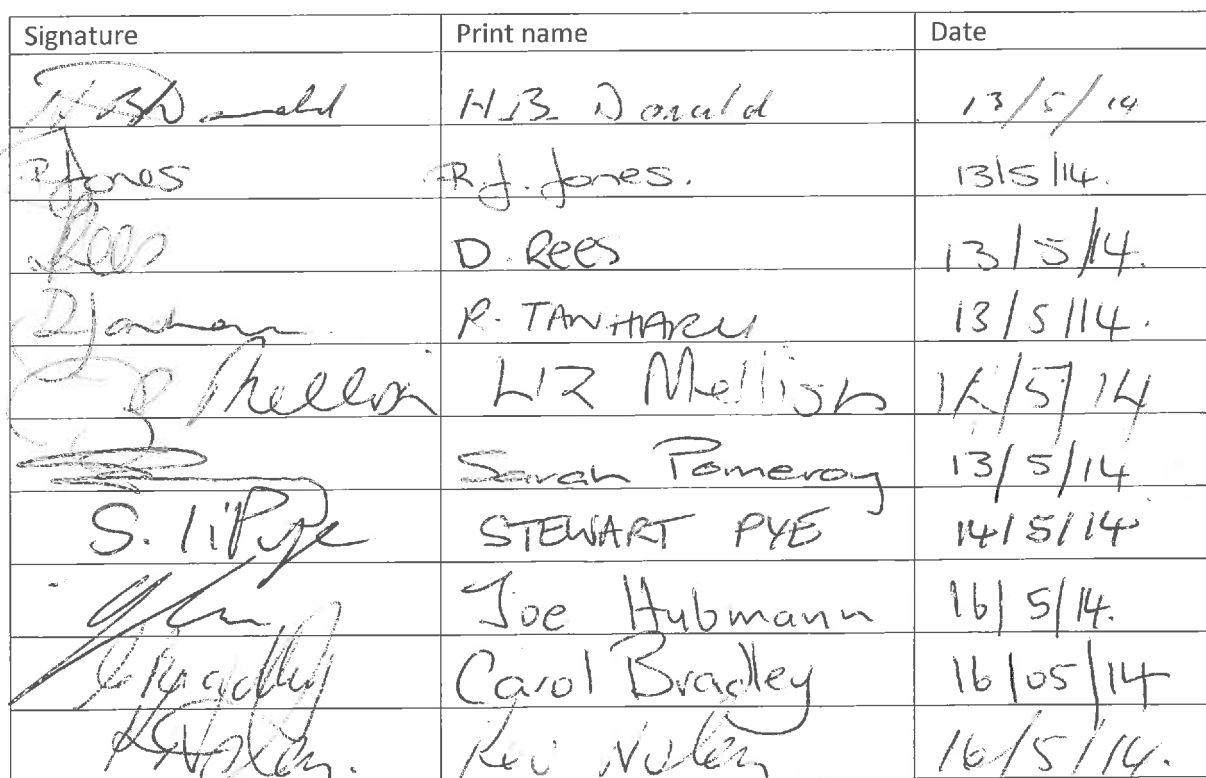 Signature Print name Date
HBDonald H.B. Donald 13/5/14
RJones R.J. Jones. 13/5/14.
Rees D. Rees 13/5/14.
R. TANHARU 13/5/14.
Mellish LIZ Mellish 14/5/14
Sarah Pomeroy 13/5/14
S. STEWART PYE 14/5/14
Joe Hubmann 16/5/14.
CBradley Carol Bradley 16/05/14
16/5/14.